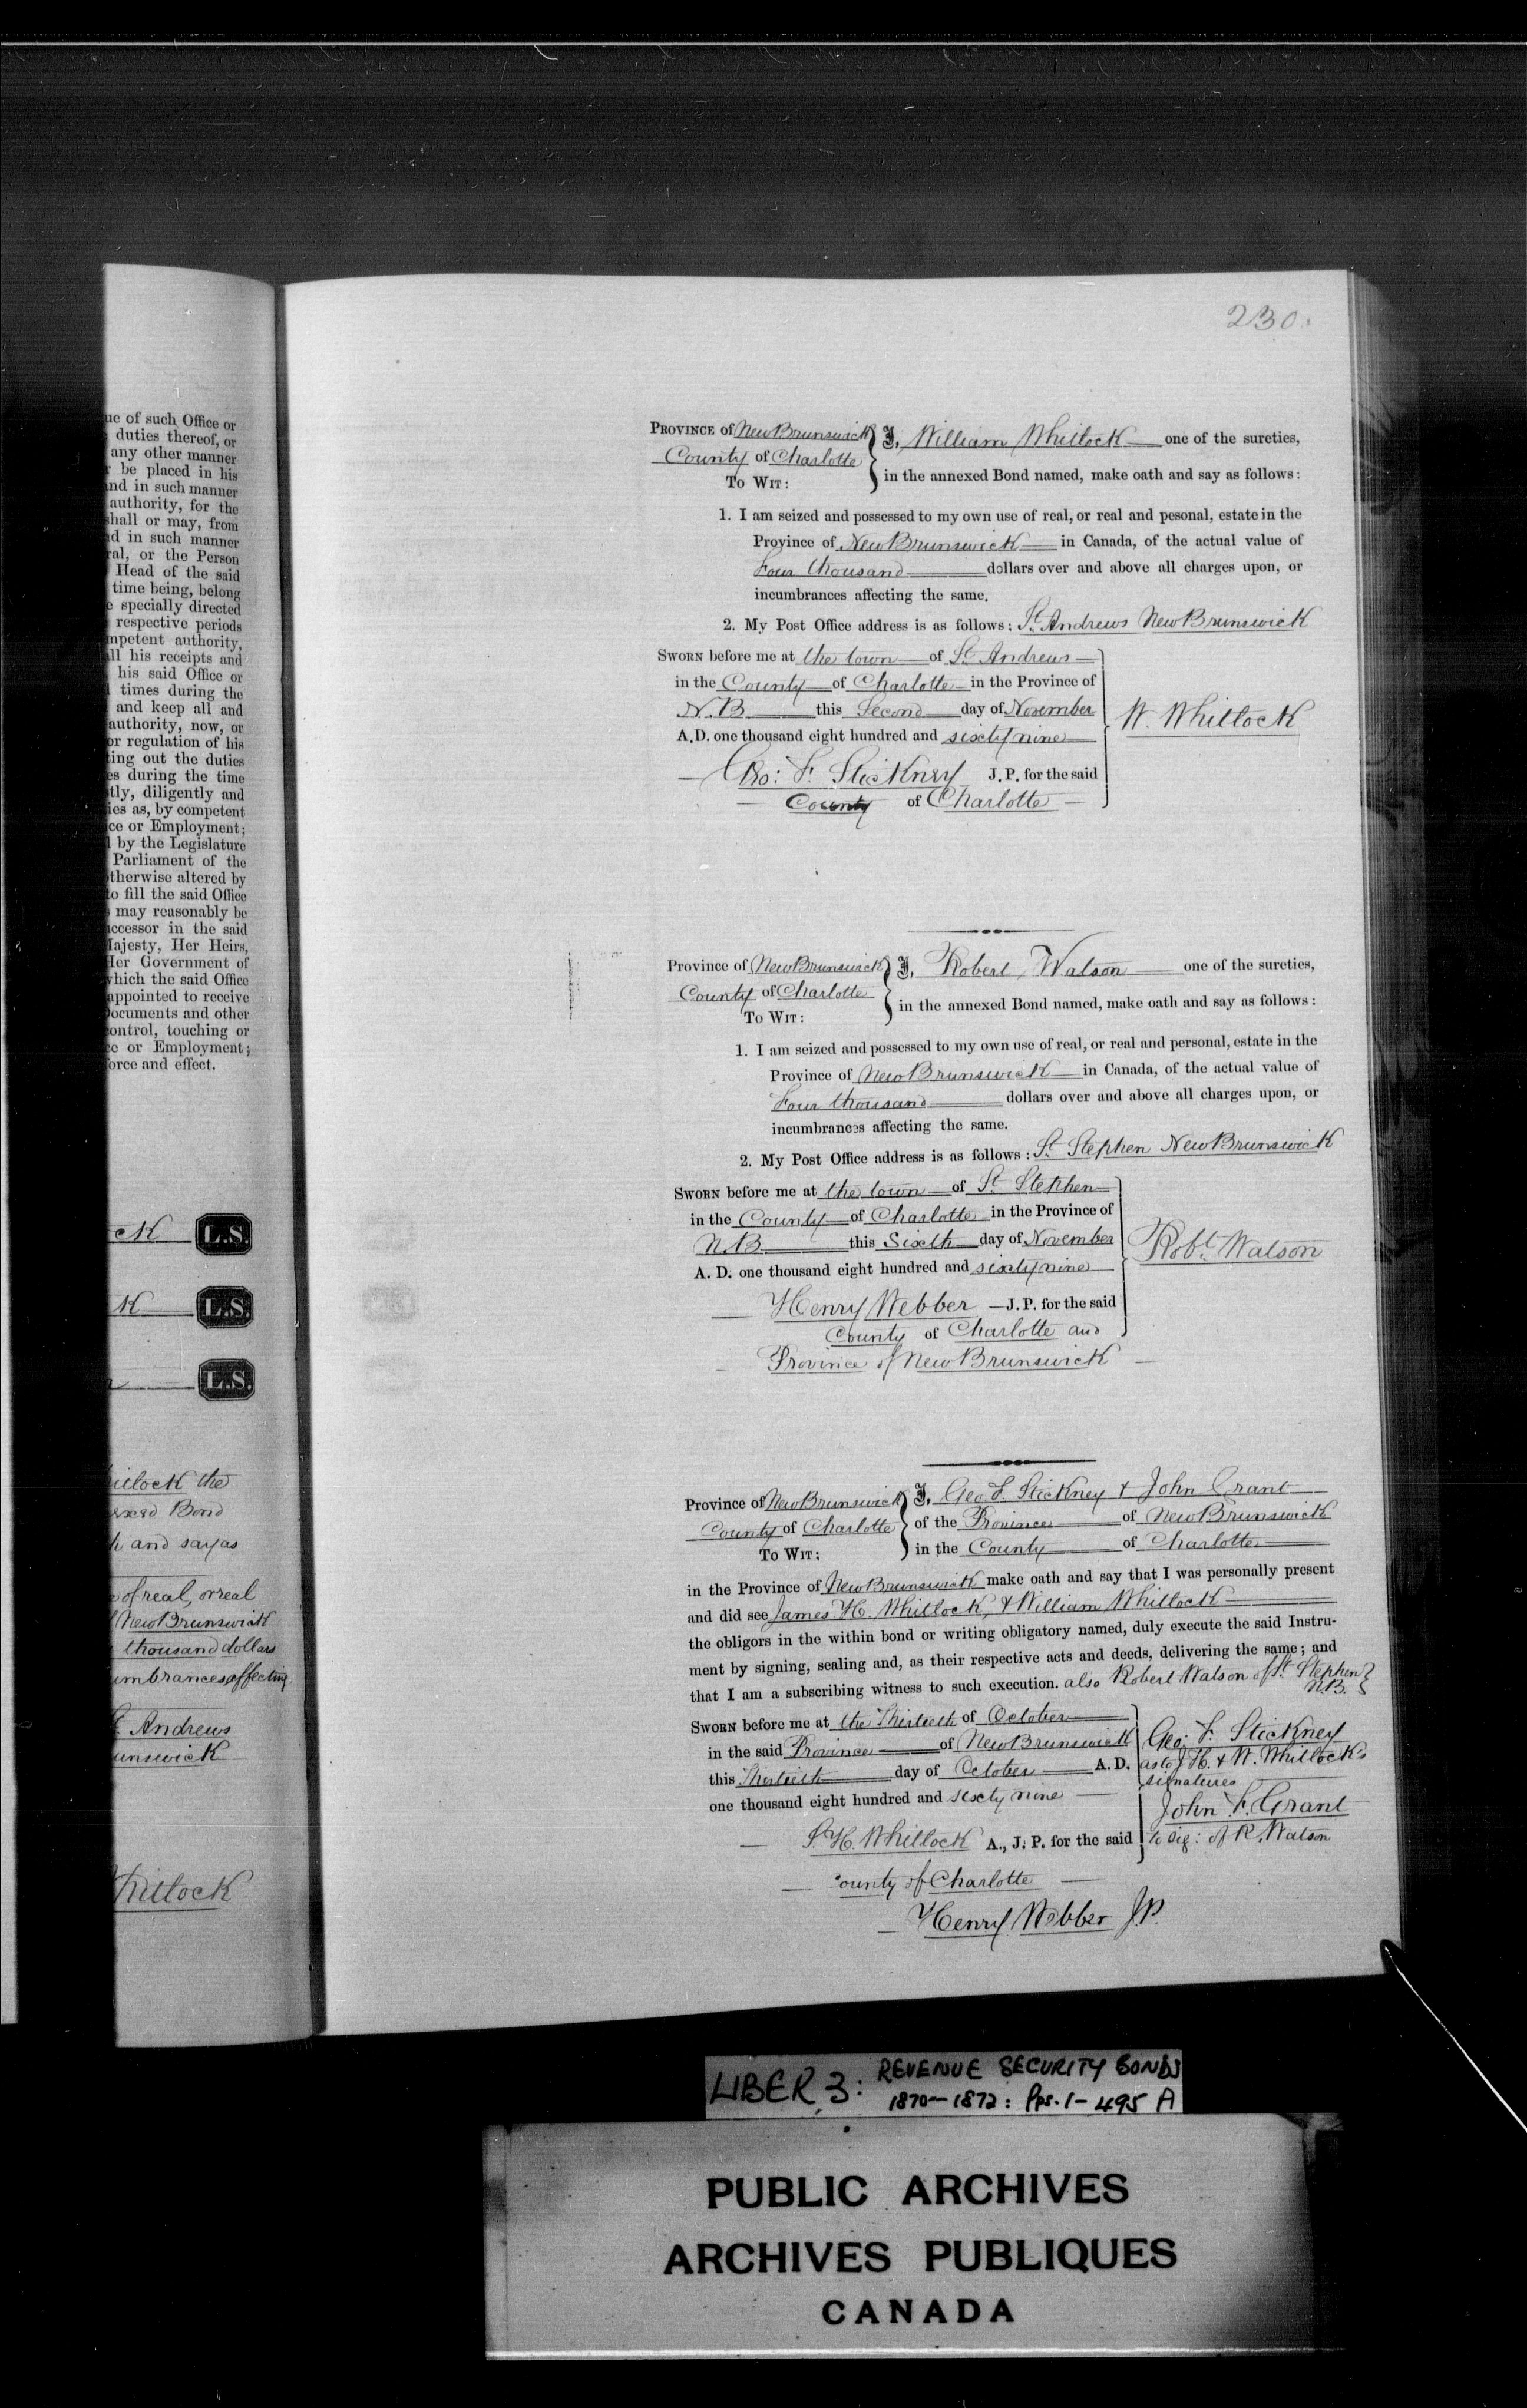 ue of such Office or
duties thereof, or
any other manner
r be placed in his
and in such manner
authority, for the
shall or may, from
d in such manner
ral, or the Person
Head of the said
time being, belong
e specially directed
respective periods
mpetent authority,
all his receipts and
his said Office or
l times during the
and keep all and
authority, now, or
or regulation of his
ting out the duties
es during the time
tly, diligently and
ies as, by competent
ce or Employment;
l by the Legislature
Parliament of the
otherwise altered by
to fill the said Office
s may reasonably be
uccessor in the said
Majesty, Her Heirs,
Her Government of
which the said Office
appointed to receive
Documents and other
control, touching or
ce or Employment;
force and effect.
ck L.S.
K L.S.
L.S.
itlock the
exed Bond
h and say as
e of real, or real
New Brunswick
thousand dollars
umbrances affecting
St. Andrews
unswick
Whitlock
230.
PROVINCE of New Brunswick I, William Whitlock one of the sureties,
County of Charlotte
TO WIT: in the annexed Bond named, make oath and say as follows:
1. I am seized and possessed to my own use of real, or real and pesonal, estate in the
Province of New Brunswick in Canada, of the actual value of
Four thousand dollars over and above all charges upon, or
incumbrances affecting the same.
2. My Post Office address is as follows: St. Andrews New Brunswick
SWORN before me at the town of St. Andrews
in the County of Charlotte in the Province of
N.B this Second day of November
W. Whitlock
A.D. one thousand eight hundred and sixty nine
Geo: F. Stickney J.P. for the said
County of Charlotte
Province of New Brunswick I, Robert Watson one of the sureties,
County of Charlotte
TO WIT: in the annexed Bond named, make oath and say as follows:
1. I am seized and possessed to my own use of real, or real and personal, estate in the
Province of New Brunswick in Canada, of the actual value of
Four thousand dollars over and above all charges upon, or
incumbrances affecting the same.
2. My Post Office address is as follows: St Stephen New Brunswick
SWORN before me at the town of St Stephen
in the County of Charlotte in the Province of
N.B this Sixth day of November
Robt. Watson
A. D. one thousand eight hundred and sixty nine
Henry Webber J.P. for the said
County of Charlotte and
Province of New Brunswick
Province of New Brunswick I, Geo. F. Stickney & John Grant
County of Charlotte of the Province of New Brunswick
TO WIT: in the County of Charlotte
in the Province of New Brunswick make oath and say that I was personally present
and did see James H. Whitlock, & William Whitlock
the obligors in the within bond or writing obligatory named, duly execute the said Instru-
ment by signing, sealing and, as their respective acts and deeds, delivering the same; and
that I am a subscribing witness to such execution. also Robert Watson of St. Stephen
N.B.
SWORN before me at the Thirtieth of October
in the said Province of New Brunswick
this Thirtieth day of October A.D.
one thousand eight hundred and sixty nine
Geo: F. Stickney
as to J H. & W. Whitlock's
signatures
John F. Grant
to sig: of R. Watson
J. H. Whitlock A., J. P. for the said
County of Charlotte
Henry Webber J.P.
LIBER 3: REVENUE SECURITY BONDS
1870-1872: Pps. 1-495 A
PUBLIC ARCHIVES
ARCHIVES PUBLIQUES
CANADA